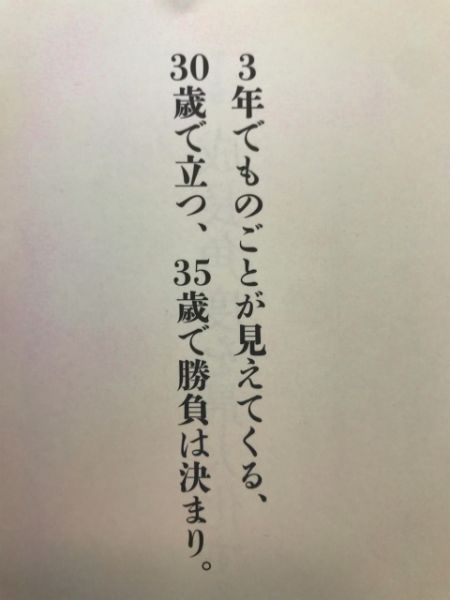 3年でものごとが見えてくる、
30歳で立つ、35歳で勝負は決まり。